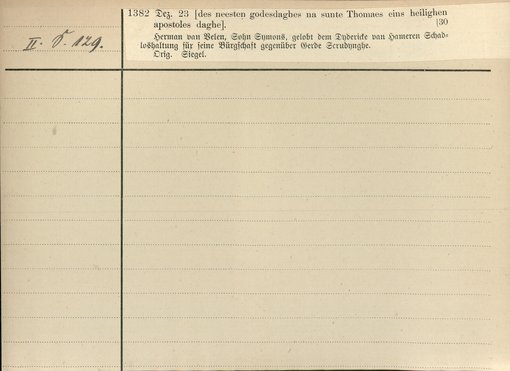 1382 Dez. 23 [des neesten godesdaghes na sunte Thomaes eins heilighen
apostoles daghe]. [30
Herman van Velen, Sohn Symons, gelobt dem Dyderick van Hameren Schad-
loshaltung für seine Bürgschaft gegenüber Gerde Scrudynghe.
Orig. Siegel.
II. S. 129.